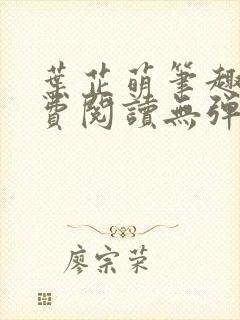 葉芷萌筆趣
費閱讀無彈
廖宗荣